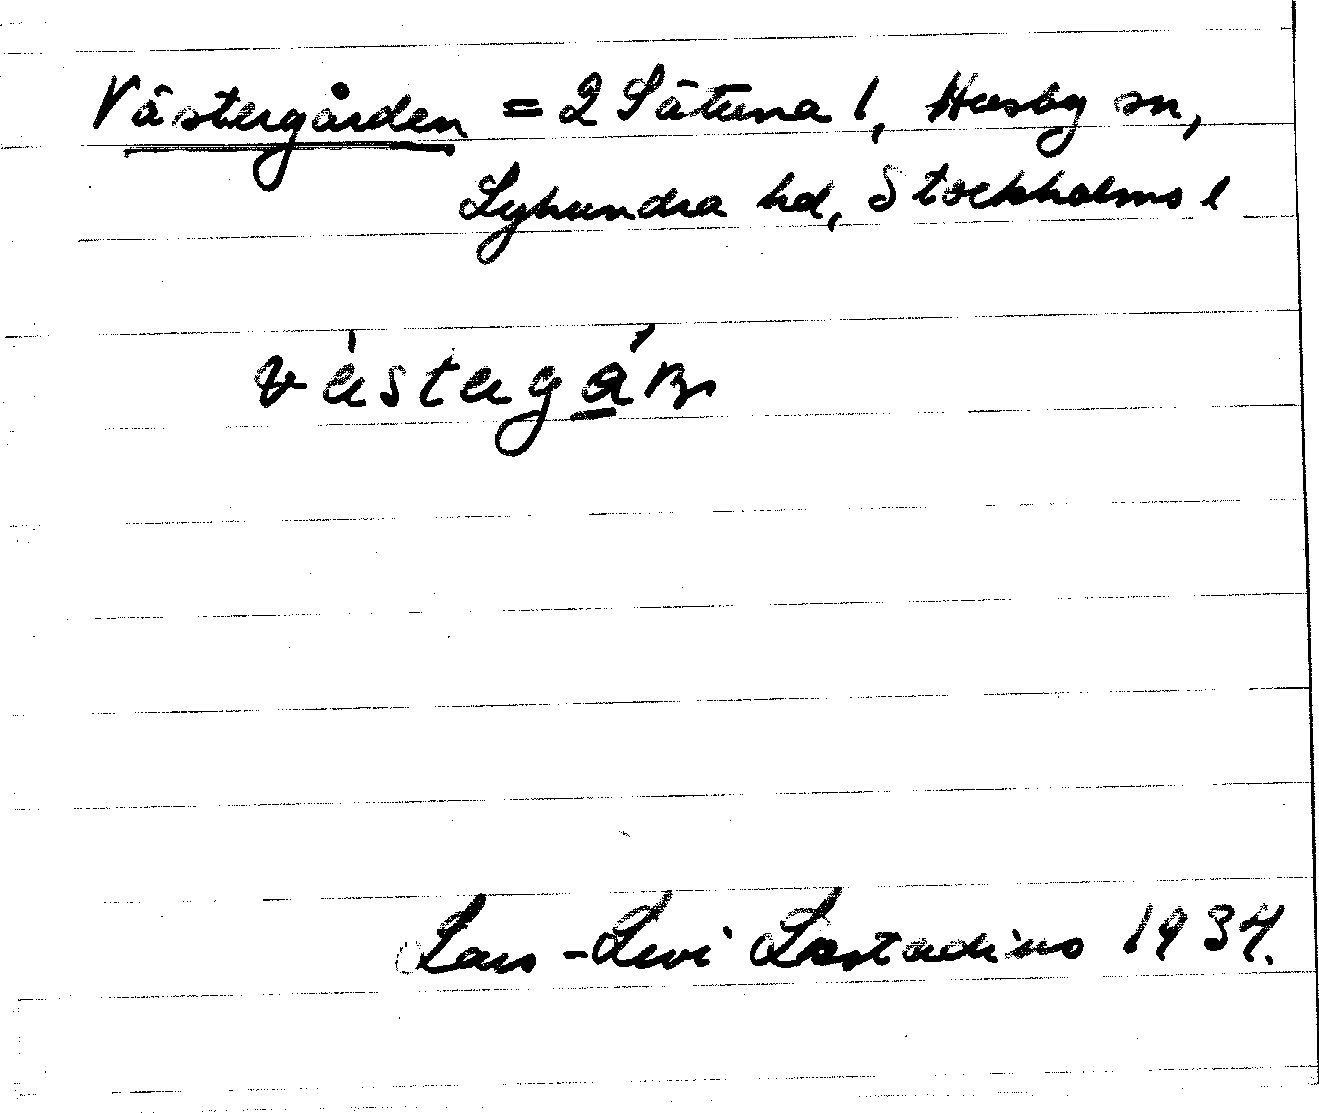 Västergården = 2 Sätuna 1, Husby sn,
Lyhundra hd, Stockholms l
Lars-Levi Læstadius 1934.